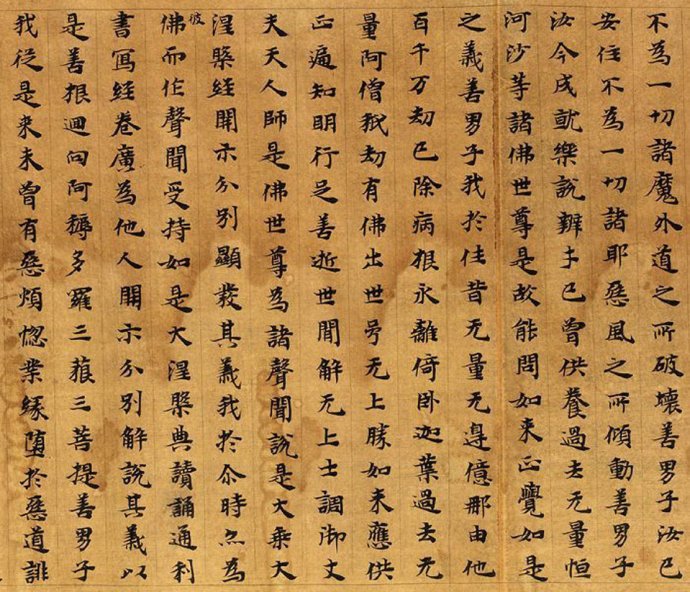 不為一切諸魔外道之所破壞善男子汝已
安住不為一切諸耶惡風之所傾動善男子
汝今成就樂說辯才已曾供養過去无量恒
河沙等諸佛世尊是故能問如來正覺如是
之義善男子我於住昔无量无邊億那由他
百千万劫已除病根永離倚卧迦葉過去无
量阿僧祇劫有佛出世号无上勝如来應供
正遍知明行足善逝世間解无上士調御丈
夫天人師是佛世尊為諸聲聞說是大乘大
涅槃經開示分別顯發其義我於尒時亦為
彼佛而作聲聞受持如是大涅槃典讀誦通利
書寫經卷廣為他人開示分別解說其義以
是善根迴向阿耨多羅三藐三菩提善男子
我從是來未曾有惡煩惱業緣墮於惡道誹